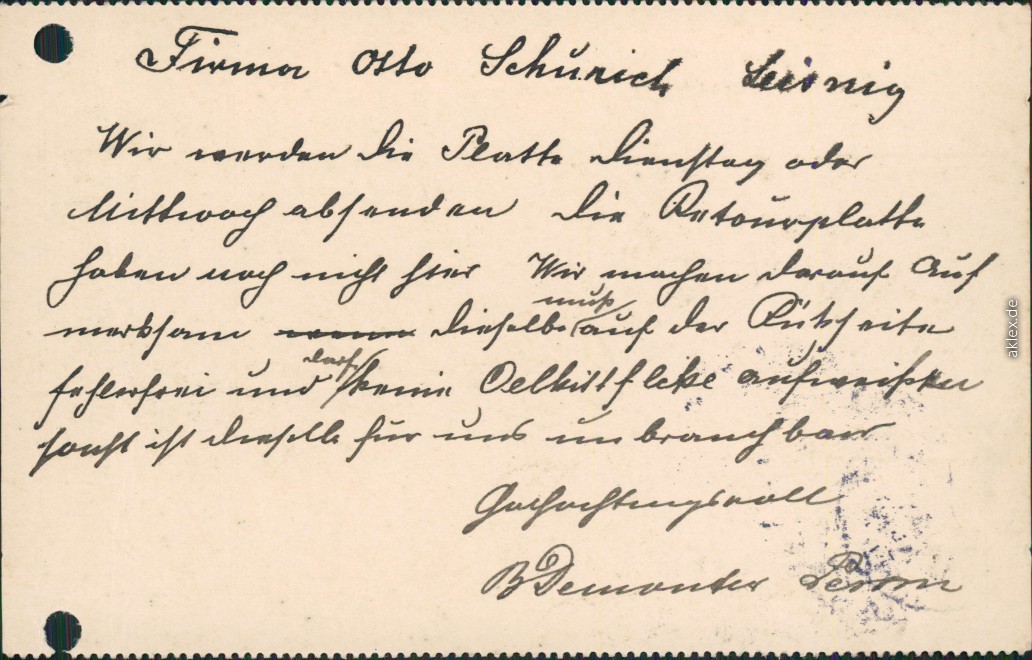 Firma Otto Schurich Leisnig
Wir werden die Platte Dienstag oder
Mittwoch absenden die Retourplatte
haben noch nicht hier Wir machen darauf Auf
merksam wenn dieselbe muß auf der Rükseite
fehlerfrei und darf keine Oelkittfleke aufweißen
sonst ist dieselbe für uns unbrauchbar
Hochachtungsvoll
B Demonter
aklex.de